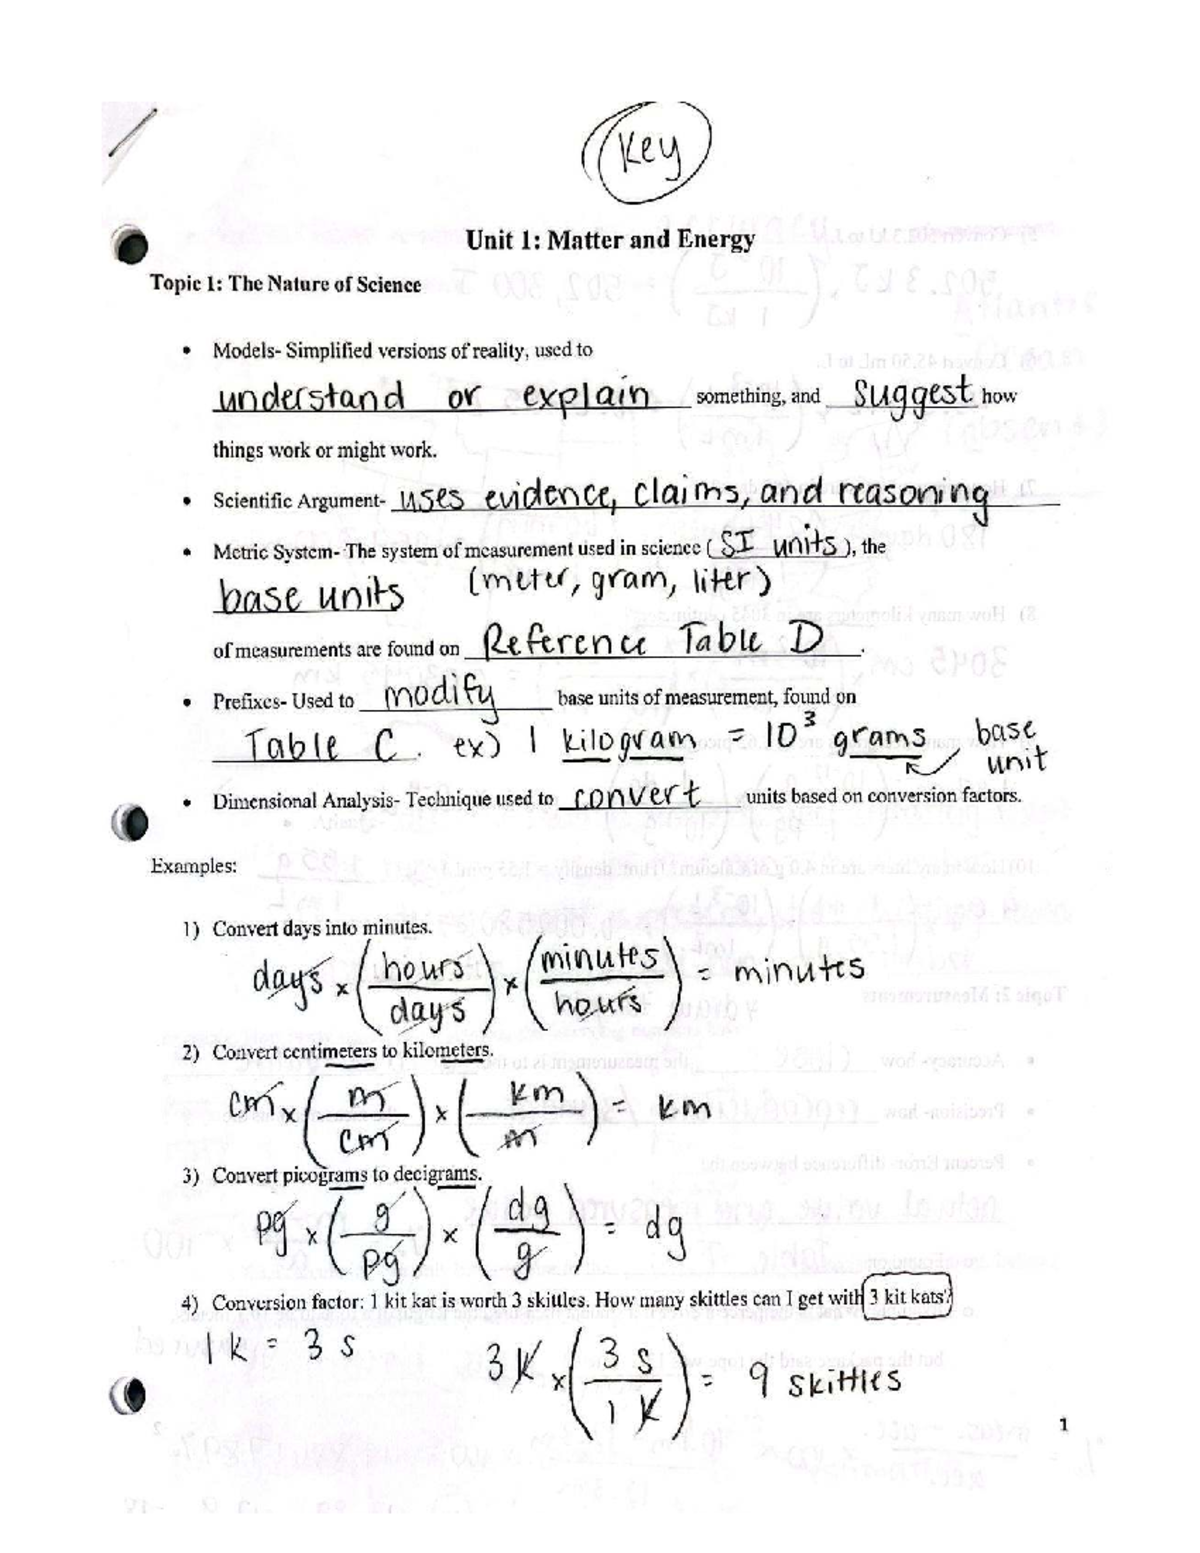 Key
Unit 1: Matter and Energy
Topic 1: The Nature of Science
• Models- Simplified versions of reality, used to
understand or explain something, and suggest how
things work or might work.
• Scientific Argument- uses evidence, claims, and reasoning
• Metric System- The system of measurement used in science (SI units), the
base units (meter, gram, liter)
of measurements are found on Reference Table D.
• Prefixes- Used to modify base units of measurement, found on
Table C. ex) 1 kilogram = 10³ grams base
unit
• Dimensional Analysis- Technique used to convert units based on conversion factors.
Examples:
1) Convert days into minutes.
days x (hours/days) x (minutes/hours) = minutes
2) Convert centimeters to kilometers.
cm x (m/cm) x (km/m) = km
3) Convert picograms to decigrams.
pg x (g/pg) x (dg/g) = dg
4) Conversion factor: 1 kit kat is worth 3 skittles. How many skittles can I get with 3 kit kats?
1k = 3 s
3k x (3 s/1 k) = 9 skittles
1